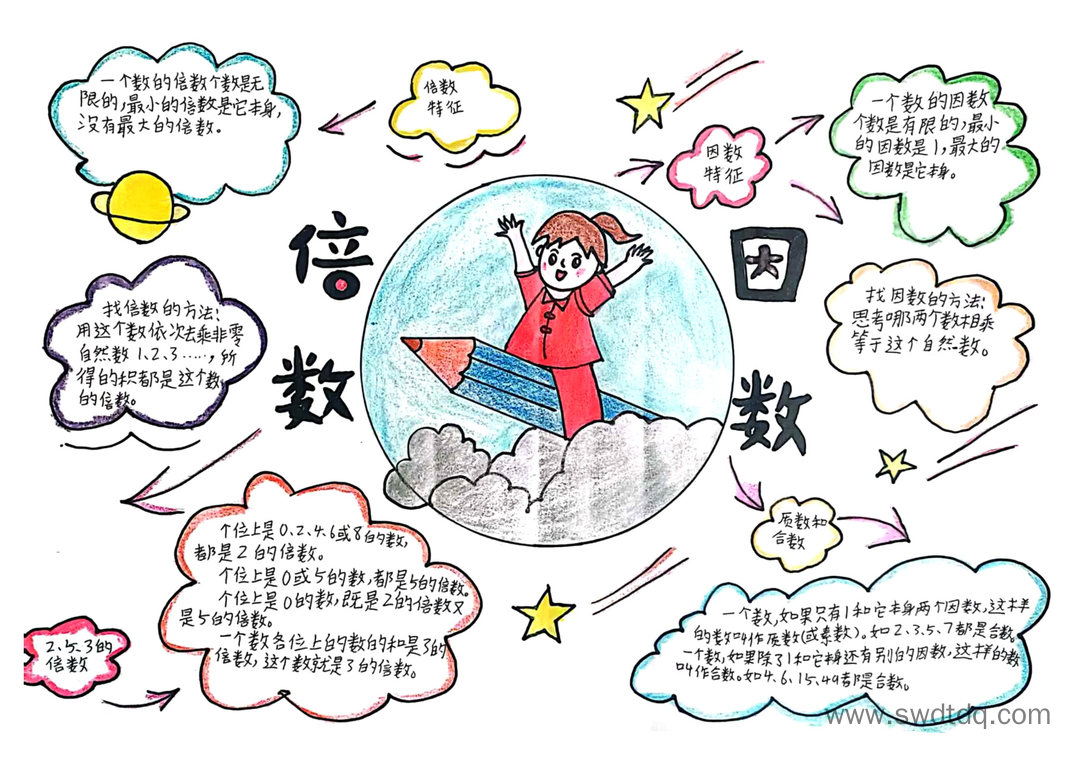 一个数的倍数个数是无
限的,最小的倍数是它本身,
没有最大的倍数。
倍数
特征
因数
特征
一个数的因数
个数是有限的,最小
的因数是1,最大的
因数是它本身。
倍数
因数
找倍数的方法:
用这个数依次去乘非零
自然数1、2、3……,所
得的积都是这个数
的倍数。
找因数的方法:
思考哪两个数相乘
等于这个自然数。
个位上是0、2、4、6或8的数,
都是2的倍数。
个位上是0或5的数,都是5的倍数。
个位上是0的数,既是2的倍数又
是5的倍数。
一个数各位上的数的和是3的
倍数,这个数就是3的倍数。
2、5、3的
倍数
质数和
合数
一个数,如果只有1和它本身两个因数,这样
的数叫作质数(或素数)。如2、3、5、7都是合数。
一个数,如果除了1和它本身还有别的因数,这样的数
叫作合数。如4、6、15、49都是合数。
www.swdtdq.com